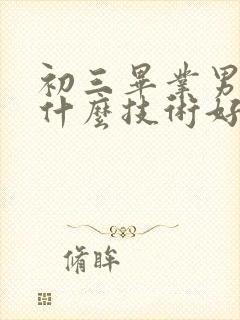 初三畢業男
什麼技術好
脩眸